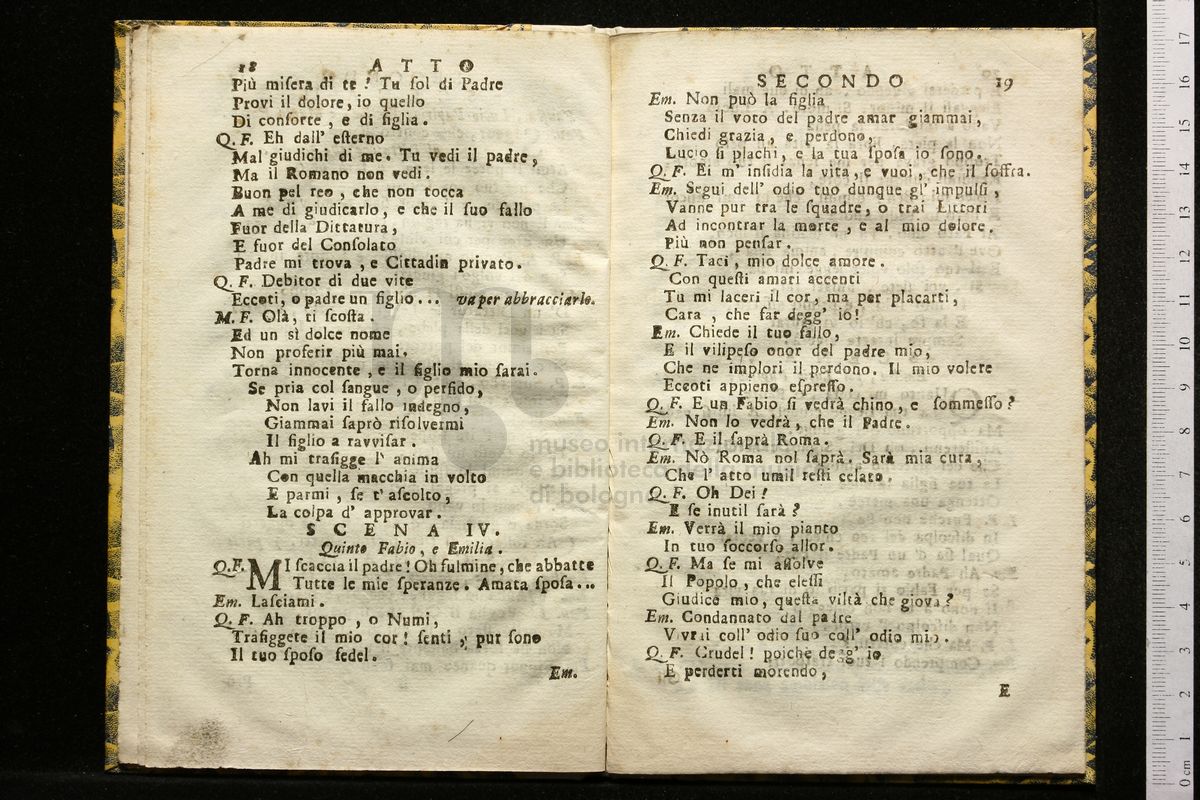 18 ATTO
Più miſera di te! Tu ſol di Padre
Provi il dolore, io quello
Di conſorte, e di figlia.
Q. F. Eh dall' eſterno
Mal giudichi di me. Tu vedi il padre,
Ma il Romano non vedi.
Buon pel reo, che non tocca
A me di giudicarlo, e che il ſuo fallo
Fuor della Dittatura,
E fuor del Conſolato
Padre mi trova, e Cittadin privato.
Q. F. Debitor di due vite
Eccoti, o padre un figlio... va per abbracciarlo.
M. F. Olà, ti ſcoſta.
Ed un sì dolce nome
Non proferir più mai.
Torna innocente, e il figlio mio ſarai.
Se pria col ſangue, o perfido,
Non lavi il fallo indegno,
Giammai ſaprò riſolvermi
Il figlio a ravviſar.
Ah mi trafigge l' anima
Con quella macchia in volto
E parmi, ſe t' aſcolto,
La colpa d' approvar.
SCENA IV.
Quinto Fabio, e Emilia.
Q. F. MI ſcaccia il padre! Oh fulmine, che abbatte
Tutte le mie ſperanze. Amata ſpoſa...
Em. Laſciami.
Q. F. Ah troppo, o Numi,
Trafiggete il mio cor! ſenti, pur ſono
Il tuo ſpoſo fedel.
Em.
SECONDO 19
Em. Non può la figlia
Senza il voto del padre amar giammai,
Chiedi grazia, e perdono,
Lucio ſi plachi, e la tua ſpoſa io ſono.
Q. F. Ei m' inſidia la vita, e vuoi, che il ſoffra.
Em. Segui dell' odio tuo dunque gl' impulſi,
Vanne pur tra le ſquadre, o trai Littori
Ad incontrar la morte, e al mio dolore.
Più non penſar.
Q. F. Taci, mio dolce amore.
Con queſti amari accenti
Tu mi laceri il cor, ma per placarti,
Cara, che far degg' io!
Em. Chiede il tuo fallo,
E il vilipeſo onor del padre mio,
Che ne implori il perdono. Il mio volere
Eccoti appieno eſpreſſo.
Q. F. E un Fabio ſi vedrà chino, e ſommeſſo?
Em. Non lo vedrà, che il Padre.
Q. F. E il ſaprà Roma.
Em. Nò Roma nol ſaprà. Sarà mia cura,
Che l' atto umil reſti celato.
Q. F. Oh Dei!
E ſe inutil ſarà?
Em. Verrà il mio pianto
In tuo ſoccorſo allor.
Q. F. Ma ſe mi aſſolve
Il Popolo, che eleſſi
Giudice mio, queſta viltà che giova?
Em. Condannato dal padre
Vivrai coll' odio ſuo coll' odio mio.
Q. F. Crudel! poichè degg' io
E perderti morendo,
E
museo
e biblioteca della musica
di bologna
0 cm 1 2 3 4 5 6 7 8 9 10 11 12 13 14 15 16 17